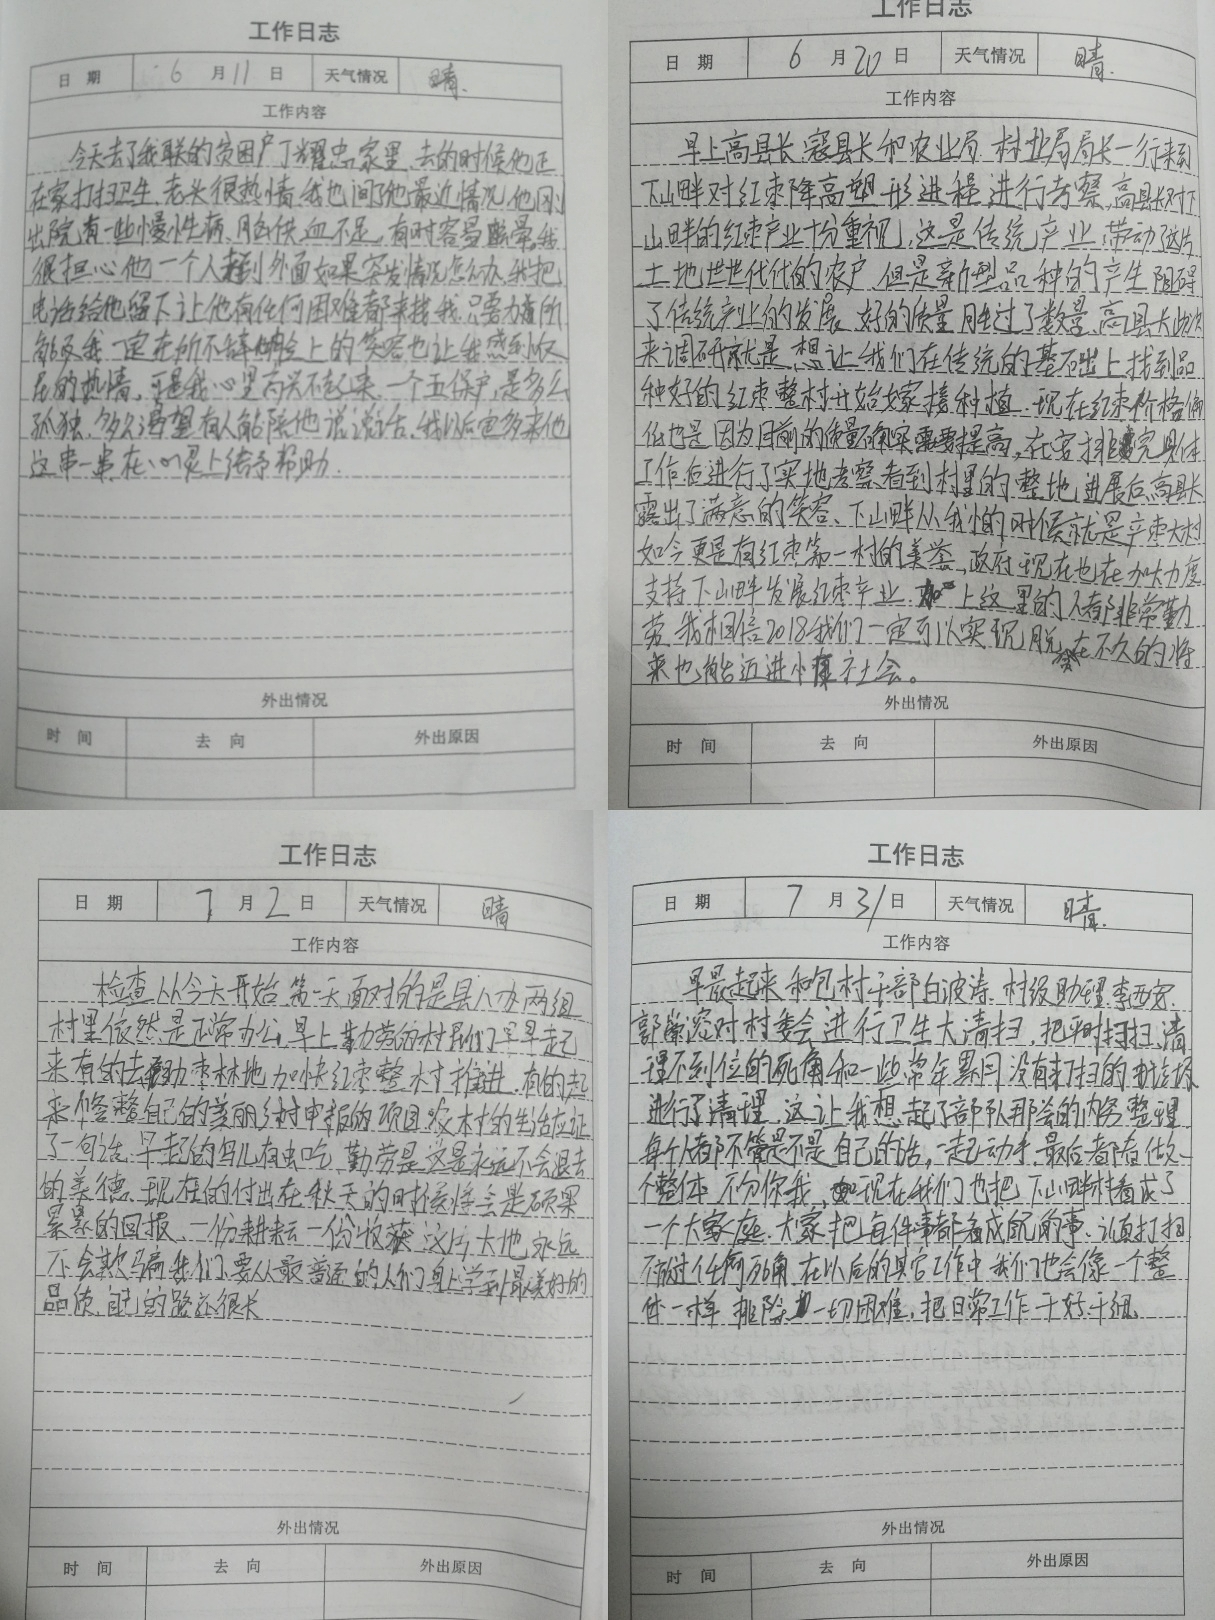 工作日志
日 期 6 月 11 日 天气情况 晴.
工作内容
今天去了我联的贫困户丁耀忠家里,去的时候他正
在家打扫卫生,老头很热情,我也问了他最近情况,他刚
出院,有一些慢性病,脑供血不足,有时容易晕,我
很担心他一个人到外面如果突发情况怎么办,我把
电话给他留下让他有任何困难都来找我,只要力所
能及我一定在所不辞,脸上的笑容也让我感到
的热情,可是我心里高兴不起来,一个五保户,是多么
孤独,多么渴望有人能陪他说说话,我以后也多来他
这串一串,在心灵上给予帮助.
外出情况
时 间 去 向 外出原因
工作日志
日 期 6 月 20 日 天气情况 晴.
工作内容
早上高县长 寇县长和农业局 林业局局长一行来到
下山畔对红枣降高塑形进程进行考察,高县长对下
山畔的红枣产业十分重视,这是传统产业,带动了这片
土地世世代代的农户,但是新型品种的产生阻碍
了传统产业的发展,好的质量胜过了数量,高县长此次
来调研就是想让我们在传统的基础上找到品
种好的红枣整村开始嫁接种植.现在红枣价格偏
低也是因为目前的质量确实需要提高,在安排完具体
工作后进行了实地考察,看到村里的整地进展后,高县长
露出了满意的笑容,下山畔从我小的时候就是产枣大村
如今更是有红枣第一村的美誉,政府现在也在加大力度
支持下山畔发展红枣产业.加上这里的人都非常勤
劳,我相信2018我们一定可以实现脱贫,在不久的将
来也能迈进小康社会。
外出情况
时 间 去 向 外出原因
工作日志
日 期 7 月 2 日 天气情况 晴
工作内容
检查从今天开始,第一天面对的是县人办两组
村里依然是正常办公,早上勤劳的村民们早早起
来有的去枣林地加快红枣整村推进,有的起
来修整自己的美丽乡村申报的项目,农村的生活应证
了一句话,早起的鸟儿有虫吃,勤劳是这是永远不会退去
的美德,现在的付出在秋天的时候将会是硕果
累累的回报,一份耕耘一份收获,这片大地永远
不会欺骗我们,要从最普通的人们身上学到最美好的
品质,自己的路还很长
外出情况
时 间 去 向 外出原因
工作日志
日 期 7 月 31 日 天气情况 晴.
工作内容
早晨起来和包村干部白波涛.村级助理李西宏.
郭溶对村委会进行卫生大清扫,把平时打扫清
理不到位的死角和一些常年累月没有打扫的垃圾
进行了清理,这让我想起了部队那会的内务整理
每个人都不管是不是自己的活,一起动手,最后都看做一
个整体,不分你我,现在我们也把下山畔村看成了
一个大家庭,大家把每件事都看成自己的事,认真打扫
不放过任何死角,在以后的其它工作中我们也会像一个整
体一样,排除一切困难,把日常工作干好干细.
外出情况
时 间 去 向 外出原因